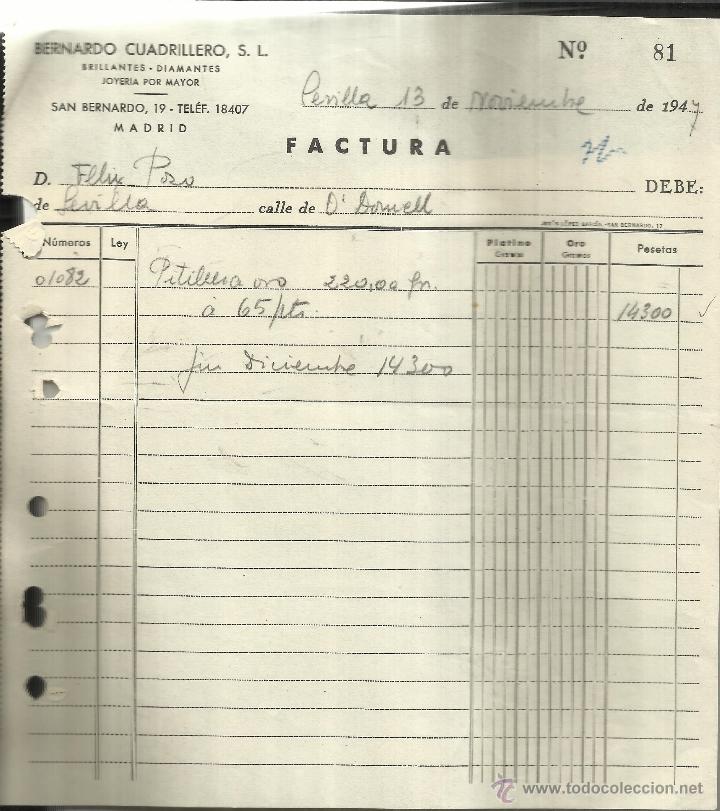 BERNARDO CUADRILLERO, S. L.
BRILLANTES - DIAMANTES
JOYERIA POR MAYOR
SAN BERNARDO, 19 - TELÉF. 18407
MADRID
Nº 81
Sevilla 13 de Noviembre de 1947
FACTURA
D. Felix Pozo DEBE:
de Sevilla calle de O'Donnell
Números Ley Platino Gramos Oro Gramos Pesetas
01082 Pitillera oro 220,00 gr.
a 65/pts. 14300
fin Diciembre 14300
www.todocoleccion.net